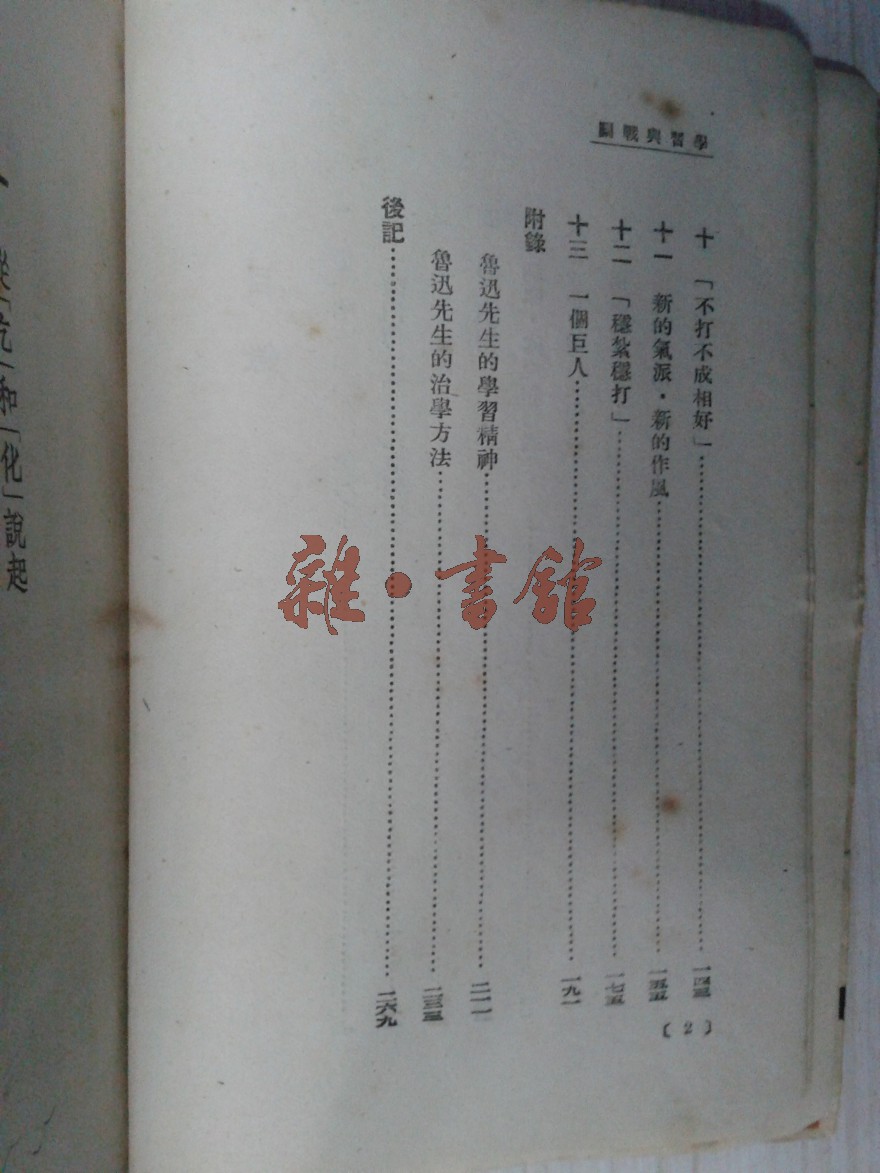 學習與戰鬭
十 「不打不成相好」 一四三
十一 新的氣派·新的作風 一五五
十二 「穩紮穩打」 一七五
十三 一個巨人 一九一
附錄
魯迅先生的學習精神 二一一
魯迅先生的治學方法 二三三
後記 二六九
〔2〕
雜·書館
「化」說起